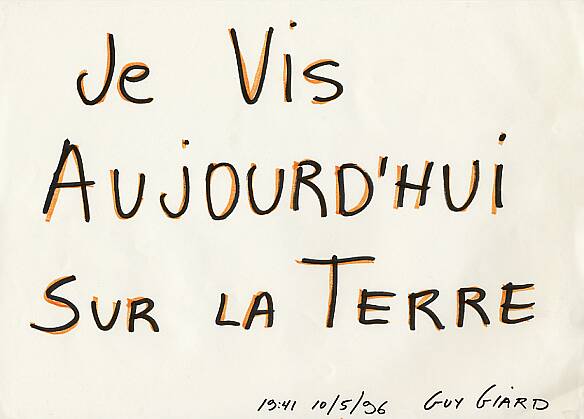 Je Vis
AUJOURD'HUI
SUR LA TERRE
19:41 10/5/96 GUY GIARD